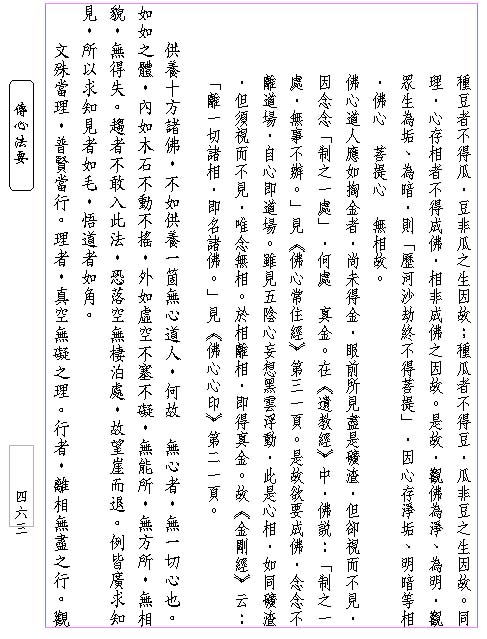 種豆者不得瓜，豆非瓜之生因故；種瓜者不得豆，瓜非豆之生因故。同
理，心存相者不得成佛，相非成佛之因故。是故，觀佛為淨、為明，觀
眾生為垢、為暗，則「歷河沙劫終不得菩提」，因心存淨垢、明暗等相
，佛心　菩提心　無相故。
佛心道人應如掏金者，尚未得金，眼前所見盡是礦渣，但卻視而不見，
因念念「制之一處」，何處　真金。在《遺教經》中，佛說：「制之一
處，無事不辦。」見《佛心常住經》第三一頁。是故欲要成佛，念念不
離道場，自心即道場。雖見五陰心妄想黑雲浮動，此是心相，如同礦渣
，但須視而不見，唯念無相。於相離相，即得真金。故《金剛經》云：
「離一切諸相，即名諸佛。」見《佛心心印》第二一頁。
供養十方諸佛，不如供養一箇無心道人，何故　無心者，無一切心也。
如如之體，內如木石不動不搖，外如虛空不塞不礙，無能所，無方所，無相
貌，無得失。趨者不敢入此法，恐落空無棲泊處，故望崖而退。例皆廣求知
見，所以求知見者如毛，悟道者如角。
文殊當理，普賢當行。理者，真空無礙之理。行者，離相無盡之行。觀
傳心法要
四六三